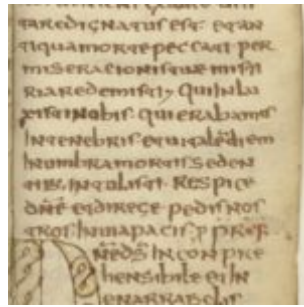 taredignatus est et an
tiquamorte peccati per
miserationisque mist
riaredemisti, qui inlu
xisti nobis. qui erabamus
intenebris et uigale diem
in umbra mortis seden
tib; intulisti. Respice
dne et direge pedis nos
tros in uia pacis p
neds incon pre
hensibile et in
enarrabelos